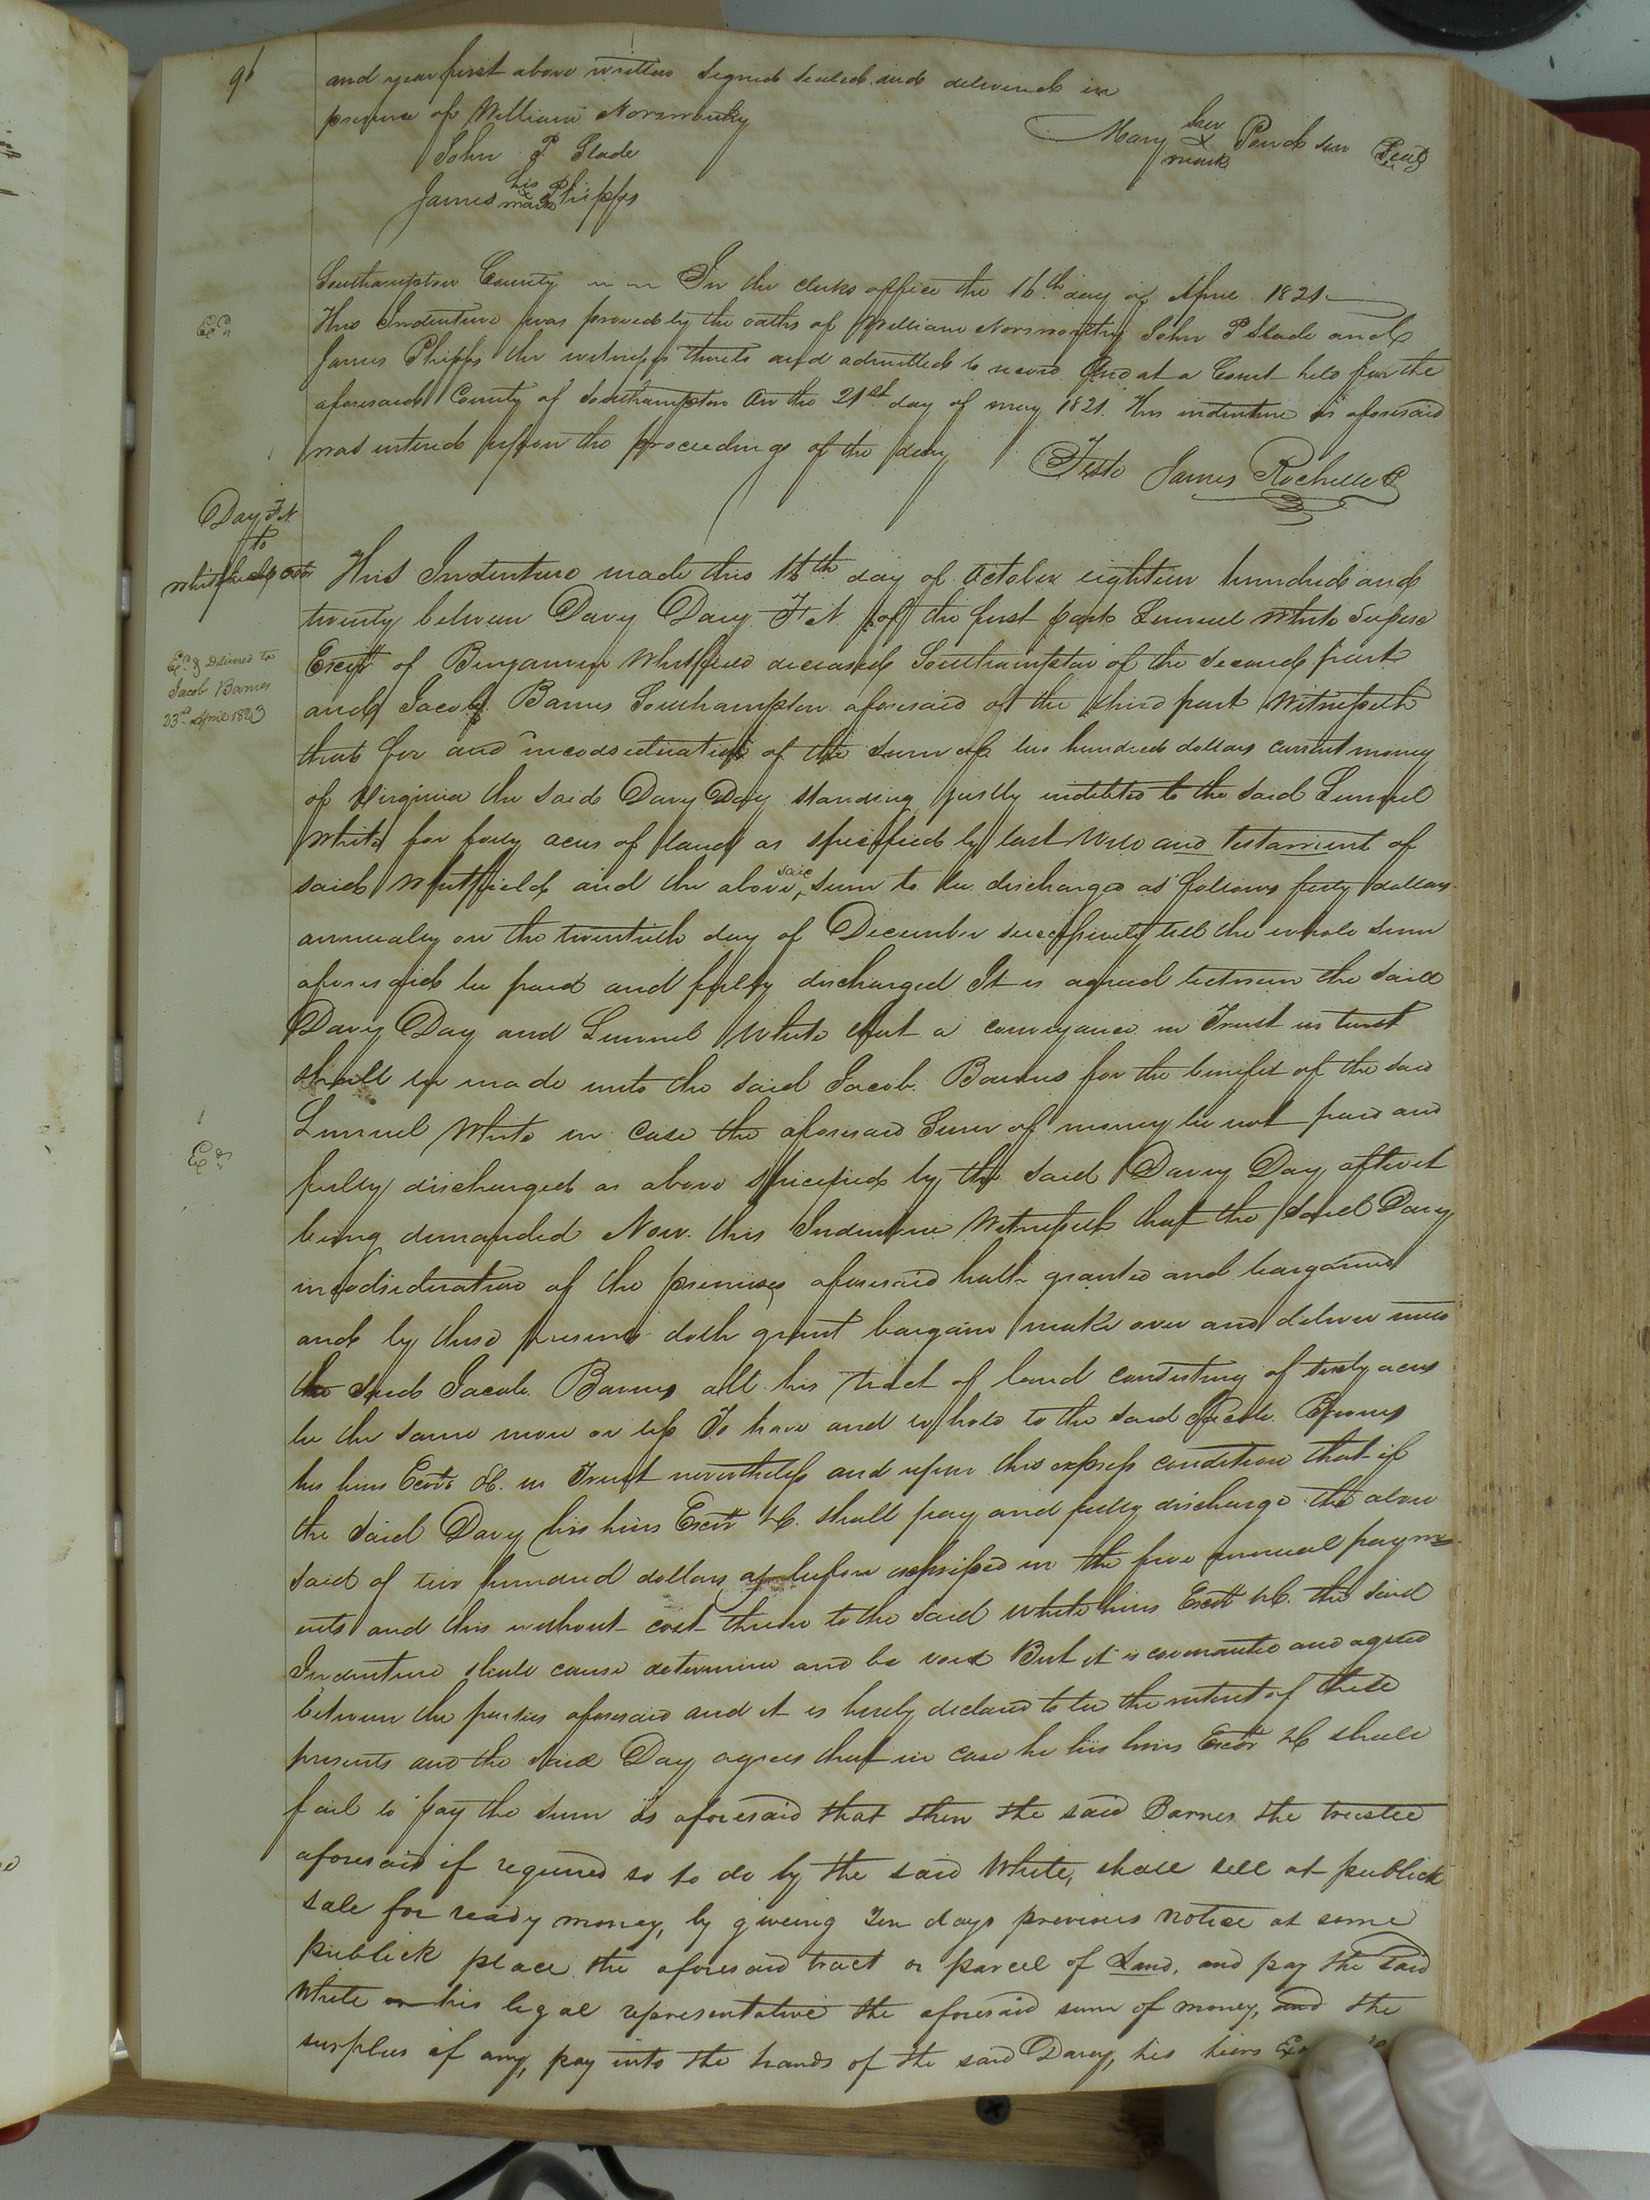 96
and year first above written Signed Sealed and delivered in
presence of William Norsworthy
Mary her x mark Pendleton Seal
John P Slade
James his x mark Phipps
Southampton County In the clerks office the 16th day of April 1821
Ex.
This Indenture was proved by the oaths of William Norsworthy John P Slade and
James Phipps the witnesses thereto and admitted to record And at a Court held for the
aforesaid County of Southampton On the 21st day of may 1821. This indenture as aforesaid
was entered upon the proceedings of the day Teste James Rochelle C
Day F N
to
Whitfields Exor
This Indenture made this 16th day of October eighteen hundred and
twenty between Davy Day F. N. of the first part Lemuel White
Excr of Benjamin Whitfield deceased Southampton of the second part
Exd & Delivered to
Jacob Barnes
23rd April 1823
and Jacob Barnes Southampton aforesaid of the third part Witnesseth
that for and in consideration of the sum of two hundred dollars current money
of Virginia the said Davy Day standing justly indebted to the said Lemuel
White for forty acres of land as specified by last Will and testament of
said Whitfield and the above said sum to be discharged as follows forty dollars
annualey on the twentieth day of December successively till the whole sum
aforesaid be paid and fully discharged It is agreed between the said
Davy Day and Lemuel White that a conveyance in Trust in trust
shall be made unto the said Jacob Barnes for the benefit of the said
Lemuel White in Case the aforesaid Sum of money be not paid and
Ex.
fully discharged as above specified by the said Davy Day after it
being demanded Now this Indenture Witnesseth that the said Davy
in consideration of the premises aforesaid hath granted and bargained
and by these presents doth grant bargain make over and deliver unto
the said Jacob Barnes all his tract of land consisting of acres
be the same more or less To have and to hold to the said Jacob Barnes
his heirs Exors &C. in Trust nevertheless and upon this express condition that if
the said Davy his heirs Excrs &C. shall pay and fully discharge the above
said of two hundred dollars as before expressed in the five annual paym
ents and this without cost to the said White heirs Excrs &C. the said
Indenture shall cease determine and be void But it is covenanted and agreed
between the parties aforesaid and it is hereby declared to be the intent of these
presents and the said Day agrees that in case he his heirs Excrs &C shall
fail to pay the sum as aforesaid that then the said Barnes the trustee
aforesaid if required so to do by the said White, shall sell at publick
sale for ready money, by giveing Ten days previous notice at some
publick place the aforesaid tract or parcel of Land, and pay the said
White or his legal representative the aforesaid sum of money, and the
surplus if any, pay into the hands of the said Davy, his heirs